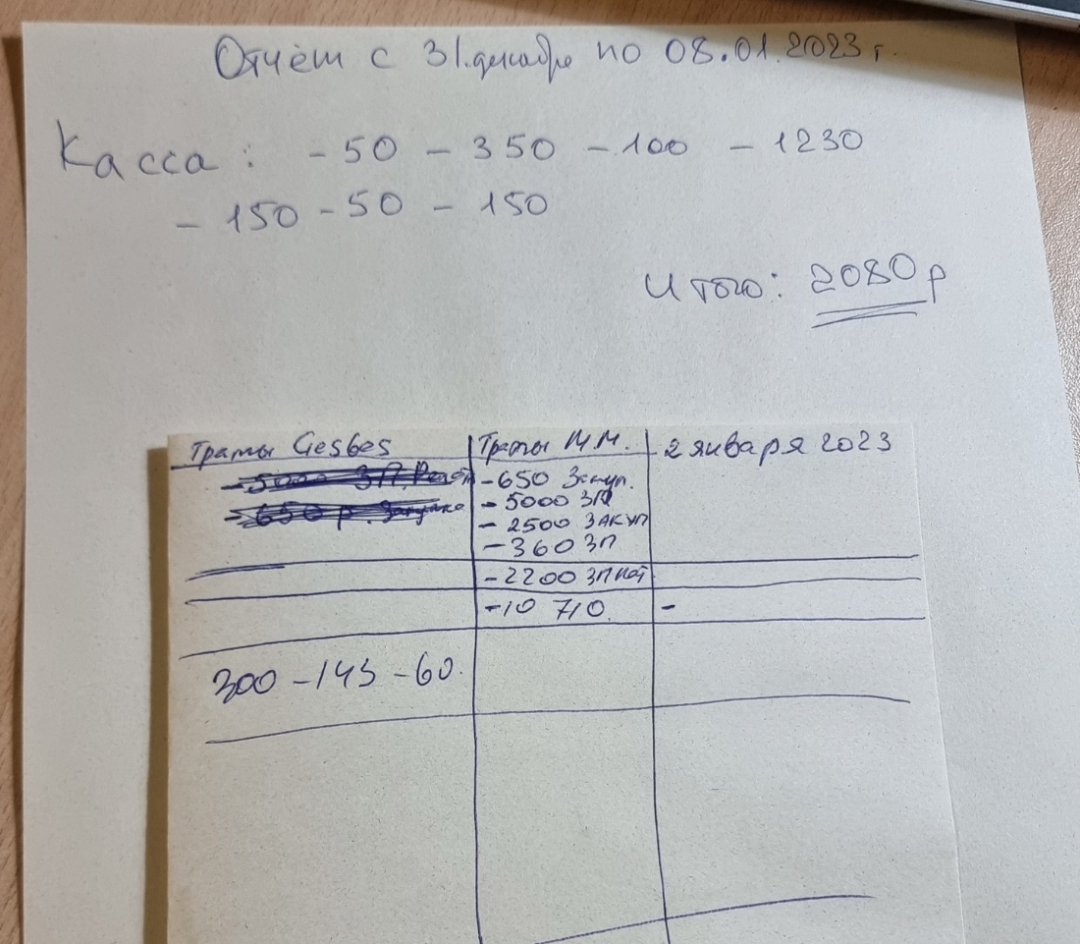 Отчёт с 31.декабря по 08.01.2023 г.
Касса : - 50 - 350 - 100 - 1230
- 150 - 50 - 150
Итого: 2080 р
Траты Gesbes
Траты М.М.
2 января 2023
- 5000 ЗП.
- 650 р. Закупка
-650 Закуп.
- 5000 ЗП
- 2500 ЗАКУП
- 360 ЗП
-2200 ЗП
-10 710.
-
300 - 145 - 60.